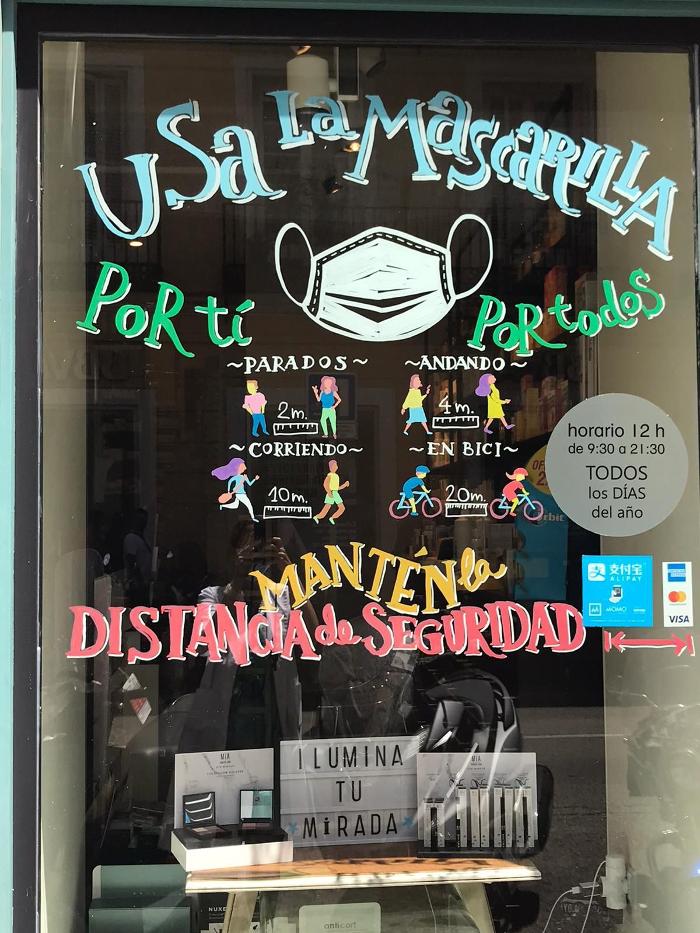 USa La MascaRILLA
PoR tí
PoR todos
~PARADOS~
~ANDANDO~
2m.
4m.
~CORRIENDO~
~EN BICI~
10m.
20m.
horario 12 h
de 9:30 a 21:30
TODOS
los DÍAS
del año
支付宝
ALIPAY
MOMO
AMERICAN EXPRESS
mastercard
VISA
MANTÉN la
DISTANCIA de SEGURIDAD
MIA
ILUMINA
TU
MiRADA
MIA
NUXE
anticort